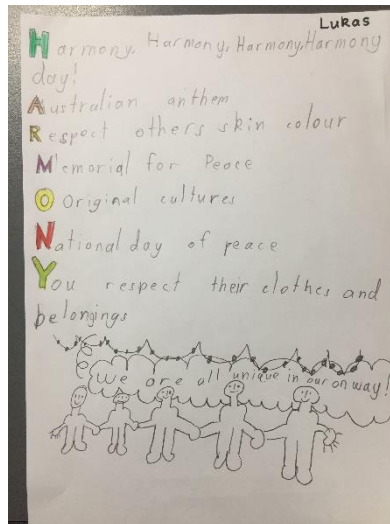 Lukas
Harmony, Harmony, Harmony, Harmony
day!
Australian anthem
Respect others skin colour
Memorial for Peace
O Original cultures
National day of peace
You respect their clothes and
belongings
We are all unique in our on way!